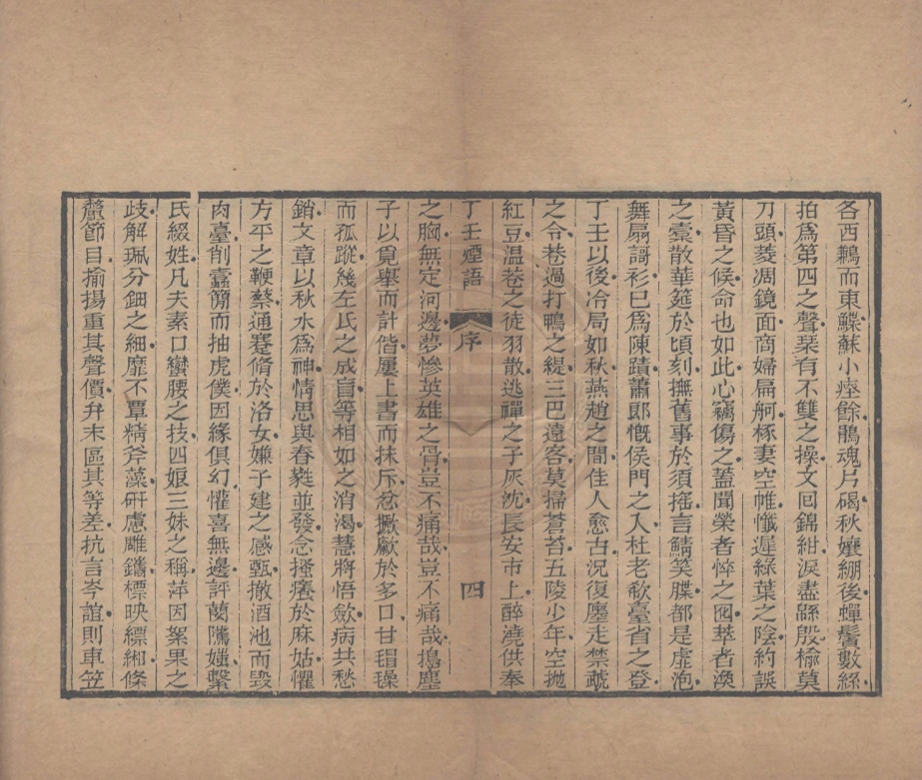 各西鶼而東鰈蘇小瘞餘鵑魂片碣秋孃綳後蟬鬢數絲
拍爲第四之聲琹有不雙之操文回錦紺淚盡緜殷椮莫
刀頭菱凋鏡面商婦扁舸椓妻空帷懺遲綠葉之陰約誤
黃昏之候命也如此心竊傷之蓋聞榮者悴之囮萃者渙
之橐散華筵於頃刻撫舊事於須搖言鯖笑牒都是虛泡
舞扇謌衫已爲陳蹟蕭郎慨侯門之入杜老欷臺省之登
丁壬以後冷局如秋燕趙之間佳人愈古況復塵走禁虣
之令巷過打鴨之緹三巴遠客莫掃蒼苔五陵少年空拋
紅豆温卷之徒羽散逃禪之子灰沈長安市上醉澆供奉
丁壬煙語
序
四
之胸無定河邊夢慘英雄之骨豈不痛哉豈不痛哉搗麈
子以覓舉而計偕屢上書而抹斥忿撅歔於多口甘瑁璪
而孤蹤幾左氏之成盲等相如之消渴慧將悟歛病共愁
銷文章以秋水爲神情思與春蕤並發念搔癢於麻姑懼
方平之鞭蔡通蹇脩於洛女嫌子建之感甄撤酒池而毀
肉臺削蠹簡而抽虎僕因緣俱幻懽喜無邊評蘭隲媸繫
氏綴姓凡夫素口蠻腰之技四娘三妹之稱萍因絮果之
歧解珮分鈿之細靡不覃精斧藻硏慮雕鐫標映縹緗條
釐節目揄揚重其聲價弁末區其等差抗言岑誼則車笠